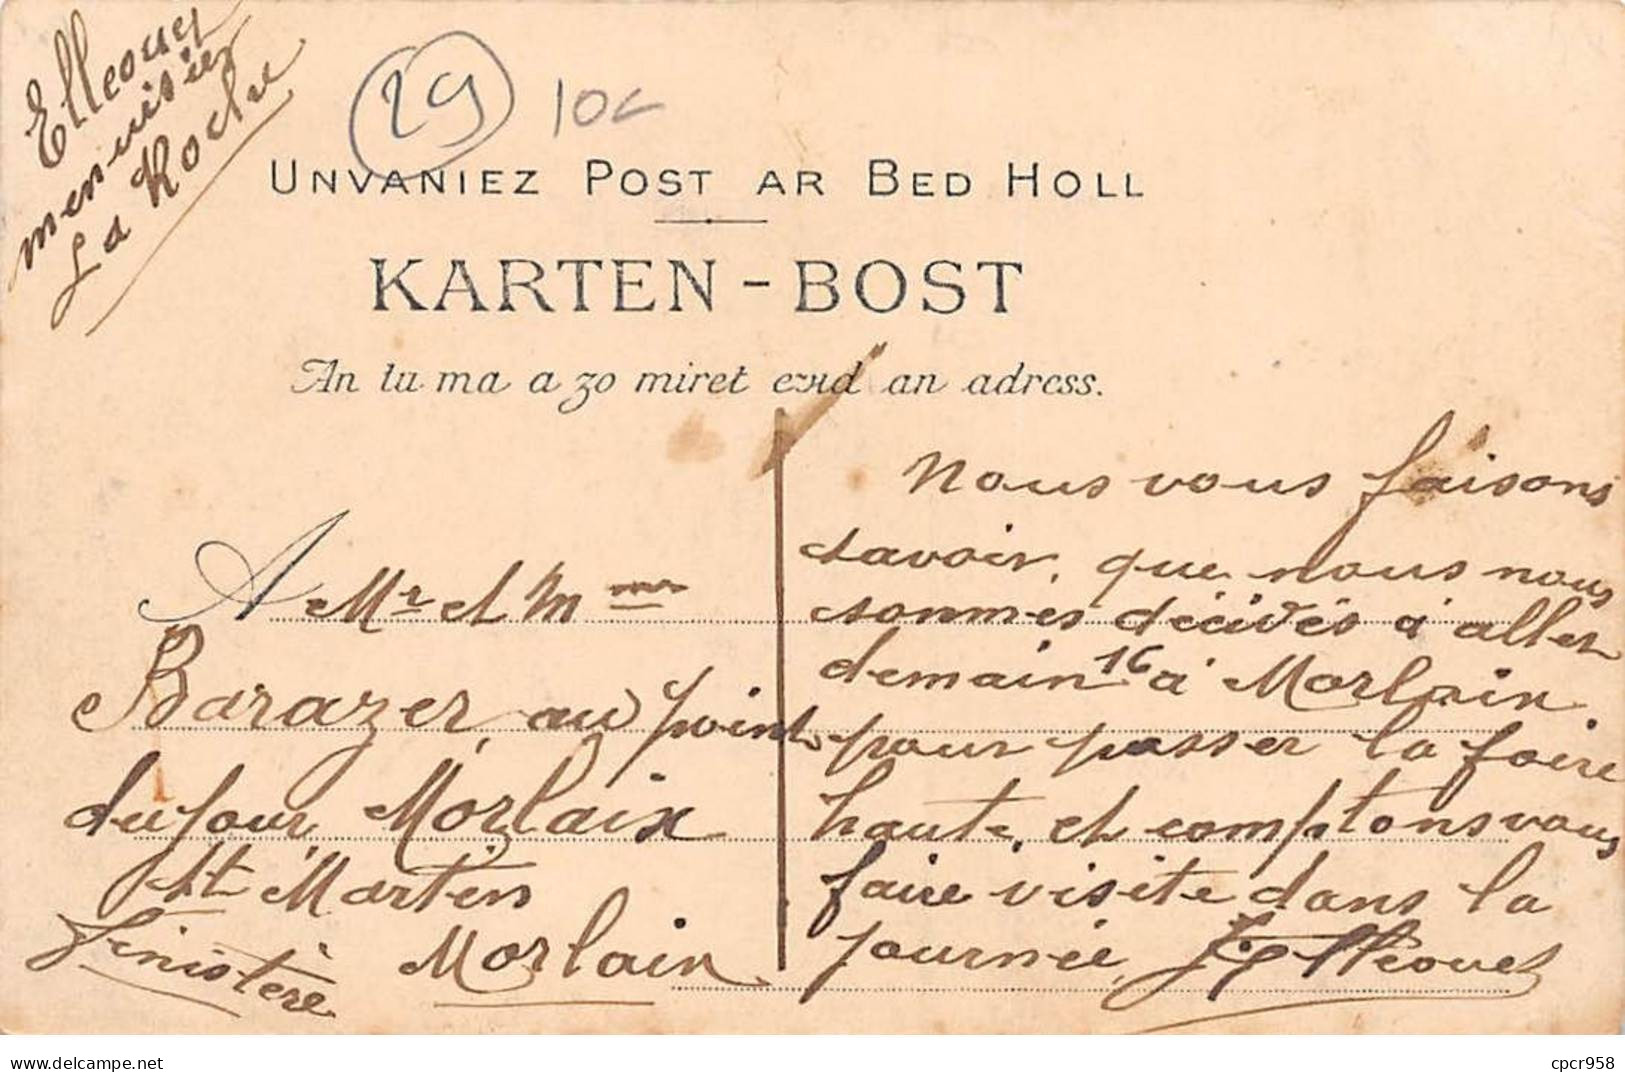 Elleouet
menuisier
La Roche
29
10c
UNVANIEZ POST AR BED HOLL
KARTEN-BOST
An tu ma a zo miret evid an adress.
A Mr et Mme
Barazer, au point
du jour Morlaix
St Martin
Finistère Morlaix
Nous vous faisons
savoir, que nous nous
sommes décidés à aller
demain 16 à Morlaix
pour passer la foire
haute, et comptons vous
faire visite dans la
journée, Elleouet
cpcr958